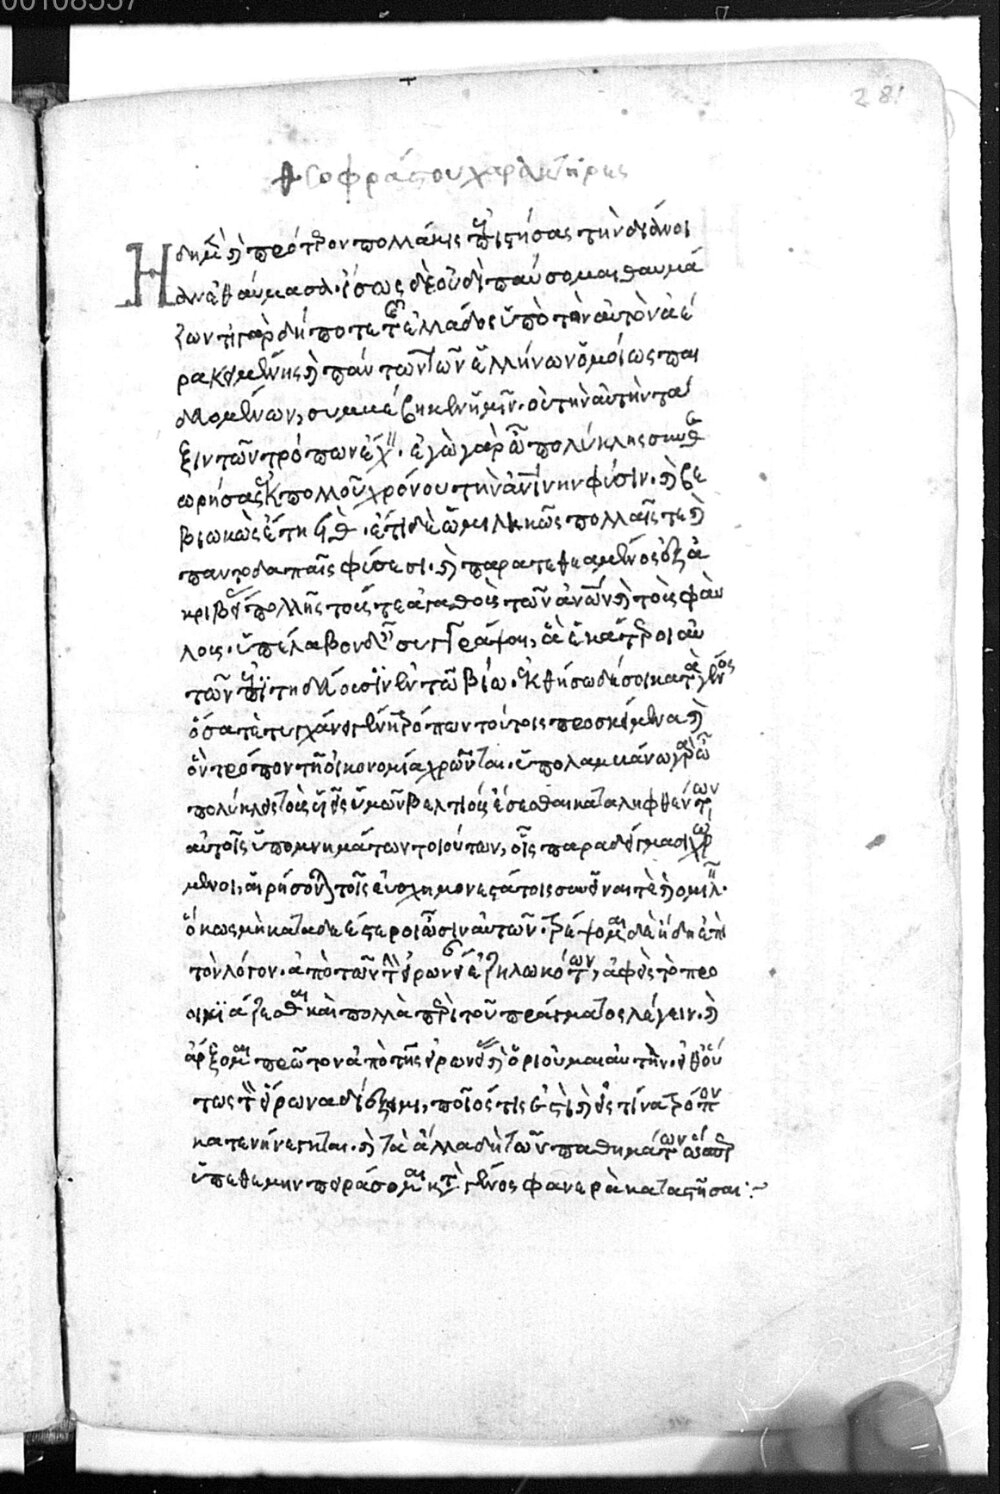 00108557
281
Θεοφράστου χαρακτῆρες
Ἤδη μὲν καὶ πρότερον πολλάκις ἐπιστήσας τὴν διάνοι
αν ἐθαύμασα· ἴσως δὲ οὐδὲ παύσομαι θαυμά
ζων τί γὰρ δήποτε τῆς ἑλλάδος ὑπὸ τὸν αὐτὸν ἀέ
ρα κειμένης καὶ πάντων τῶν ἑλλήνων ὁμοίως παι
δευομένων, συμβέβηκεν ἡμῖν οὐ τὴν αὐτὴν τά
ξιν τῶν τρόπων ἔχειν. ἐγὼ γὰρ ὦ πολύκλης συνθε
ωρήσας ἐκ πολλοῦ χρόνου τὴν ἀνθρωπίνην φύσιν. καὶ βε
βιωκὼς ἔτη ϟθ. ἔτι δὲ ὡμιληκὼς πολλαῖς τε καὶ
παντοδαπαῖς φύσεσι. καὶ παρατεθεαμένος ἐξ ἀ
κριβείας πολλῆς τούς τε ἀγαθοὺς τῶν ἀνθρώπων καὶ τοὺς φαύ
λους. ὑπέλαβον δεῖν συγγράψαι, ἃ ἑκάτεροι αὐ
τῶν ἐπιτηδεύουσιν ἐν τῷ βίῳ. ἐκθήσω δή σοι κατὰ γένος
ὅσα τὲ τυγχάνει γένη τρόπων τούτοις προσκείμενα καὶ
ὃν τρόπον τῇ οἰκονομίᾳ χρῶνται. ὑπολαμβάνω γὰρ ὦ
πολύκλεις τοὺς υἱεῖς ὑμῶν βελτίους ἔσεσθαι καταλειφθέντων
αὐτοῖς ὑπομνημάτων τοιούτων, οἷς παραδείγμασι χρώ
μενοι, αἱρήσονται τοῖς εὐσχημονεστάτοις συνεῖναί τε καὶ ὁμιλεῖν.
ὅπως μὴ καταδεέστεροι ὦσιν αὐτῶν. τρέψομαι δὲ ἤδη ἐπὶ
τὸν λόγον. ἀπὸ τῶν τὴν εἰρωνείαν ἐζηλωκότων, ἀφεὶς τὸ προ
οιμιάζεσθαι καὶ πολλὰ περὶ τοῦ πράγματος λέγειν. καὶ
ἄρξομαι πρῶτον ἀπὸ τῆς εἰρωνείας καὶ ὁριοῦμαι αὐτὴν. εἶθ' οὕ
τως τὸν εἴρωνα διέξειμι, ποῖός τίς ἐστι καὶ εἰς τίνα τρόπον
κατενήνεκται. καὶ τὰ ἄλλα δὴ τῶν παθημάτων ὥσπερ
ὑπεθέμην πειράσομαι κατὰ γένος φανερὰ καταστῆσαι:~